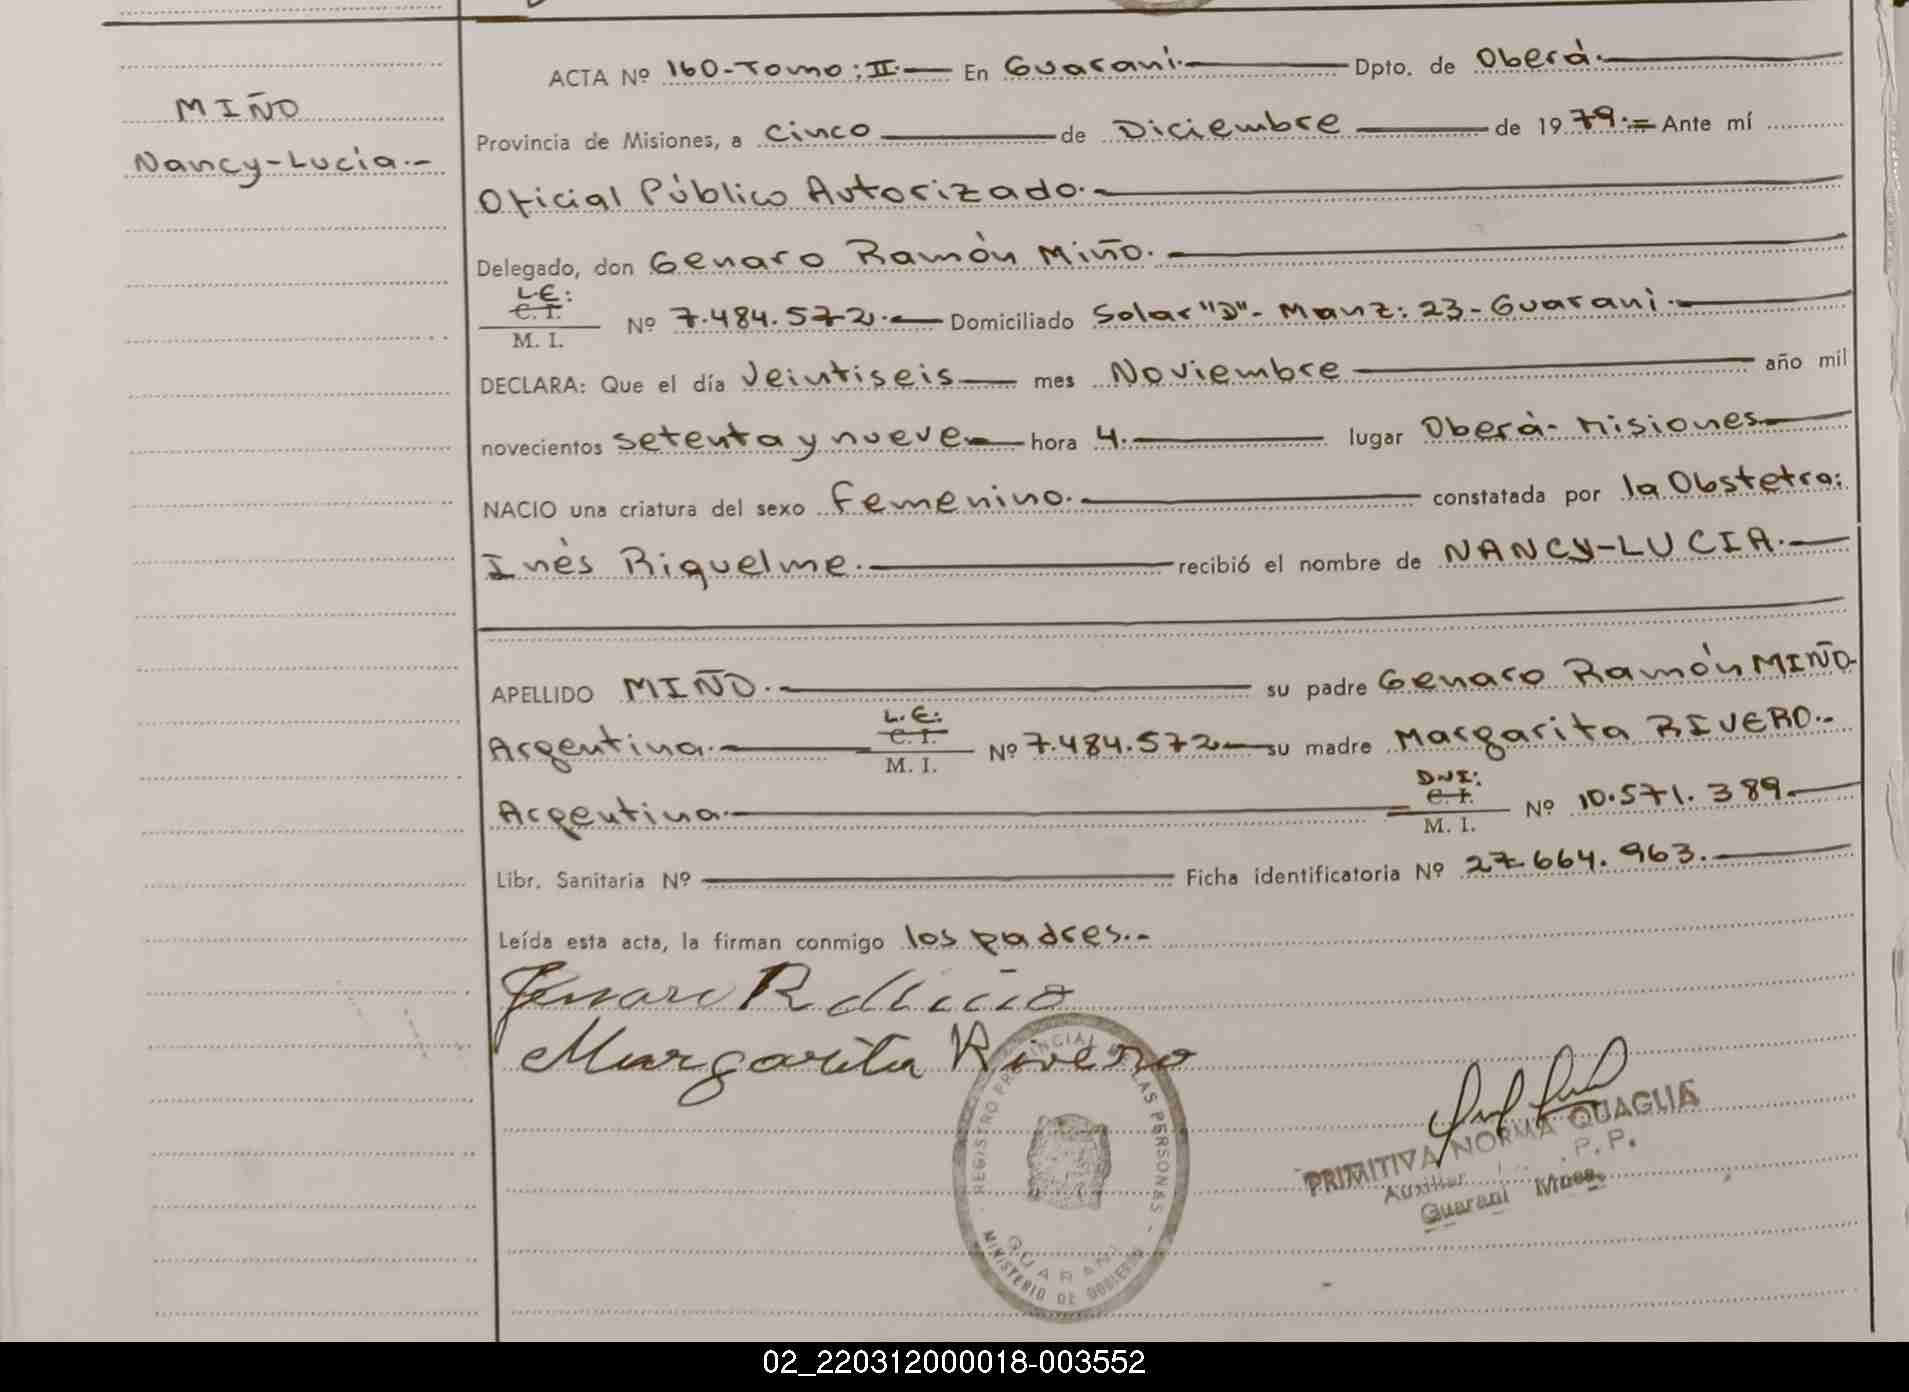 MIÑO
Nancy-Lucía.-
ACTA Nº 160-Tomo: II.- En Guaraní.- Dpto. de Oberá.-
Provincia de Misiones, a Cinco de Diciembre de 1979.= Ante mí
Oficial Público Autorizado.-
Delegado, don Genaro Ramón Miño.-
L.E:
C. I.
M. I.
Nº 7.484.572.- Domiciliado Solar "D"- Manz: 23-Guaraní.-
DECLARA: Que el día Veintiseis mes Noviembre año mil
novecientos setenta y nueve hora 4.- lugar Oberá- Misiones
NACIO una criatura del sexo Femenino.- constatada por la Obstetra:
Inés Riquelme.- recibió el nombre de NANCY-LUCIA.-
APELLIDO MIÑO.- su padre Genaro Ramón MIÑO-
Argentina.- L.E: C. I. M. I. Nº 7.484.572- su madre Margarita RIVERO.-
Argentina.- DNI: C. I. M. I. Nº 10.571.389.-
Libr. Sanitaria Nº Ficha identificatoria Nº 27.664.963.-
Leída esta acta, la firman conmigo los padres.-
Genaro R Miño
Margarita Rivero
REGISTRO PROVINCIAL DE LAS PERSONAS
GUARANI
MINISTERIO DE GOBIERNO
PRIMITIVA NORMA QUAGLIA
Auxiliar P.P.
Guaraní Mnes.
02_220312000018-003552